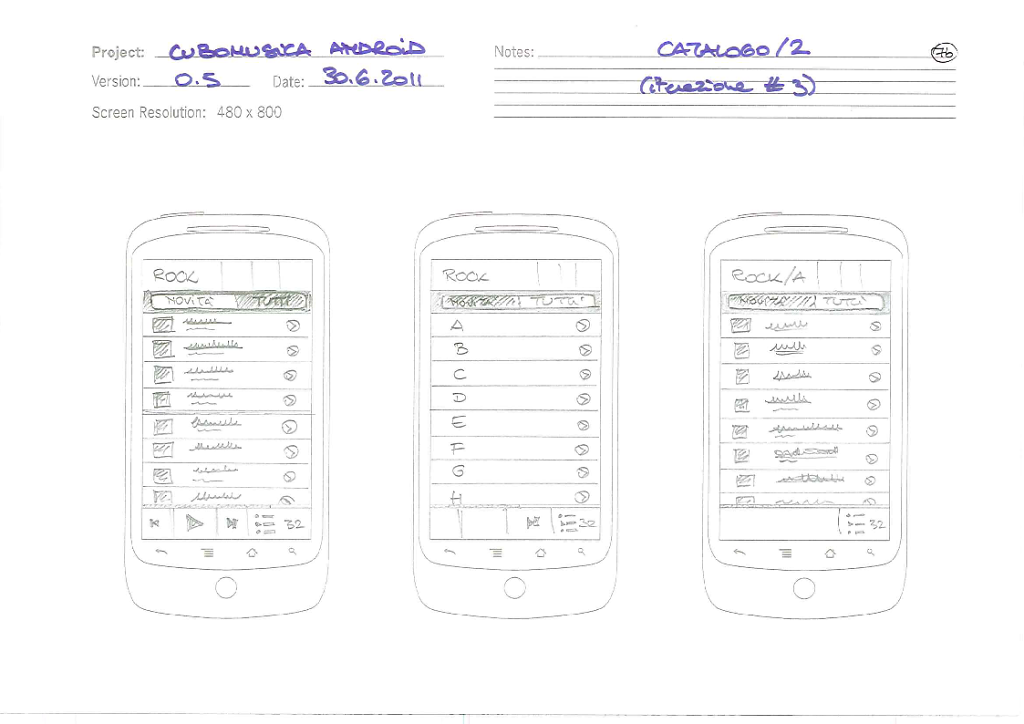 Project: CUBOMUSICA ANDROID
Version: 0.5 Date: 30.6.2011
Screen Resolution: 480 x 800
Notes: CATALOGO/2
(iterazione # 3)
7b
ROCK
NOVITA' TUTTI
32
ROCK
NOVITA' TUTTI
A
B
C
D
E
F
G
H
32
ROCK/A
NOVITA' TUTTI
32